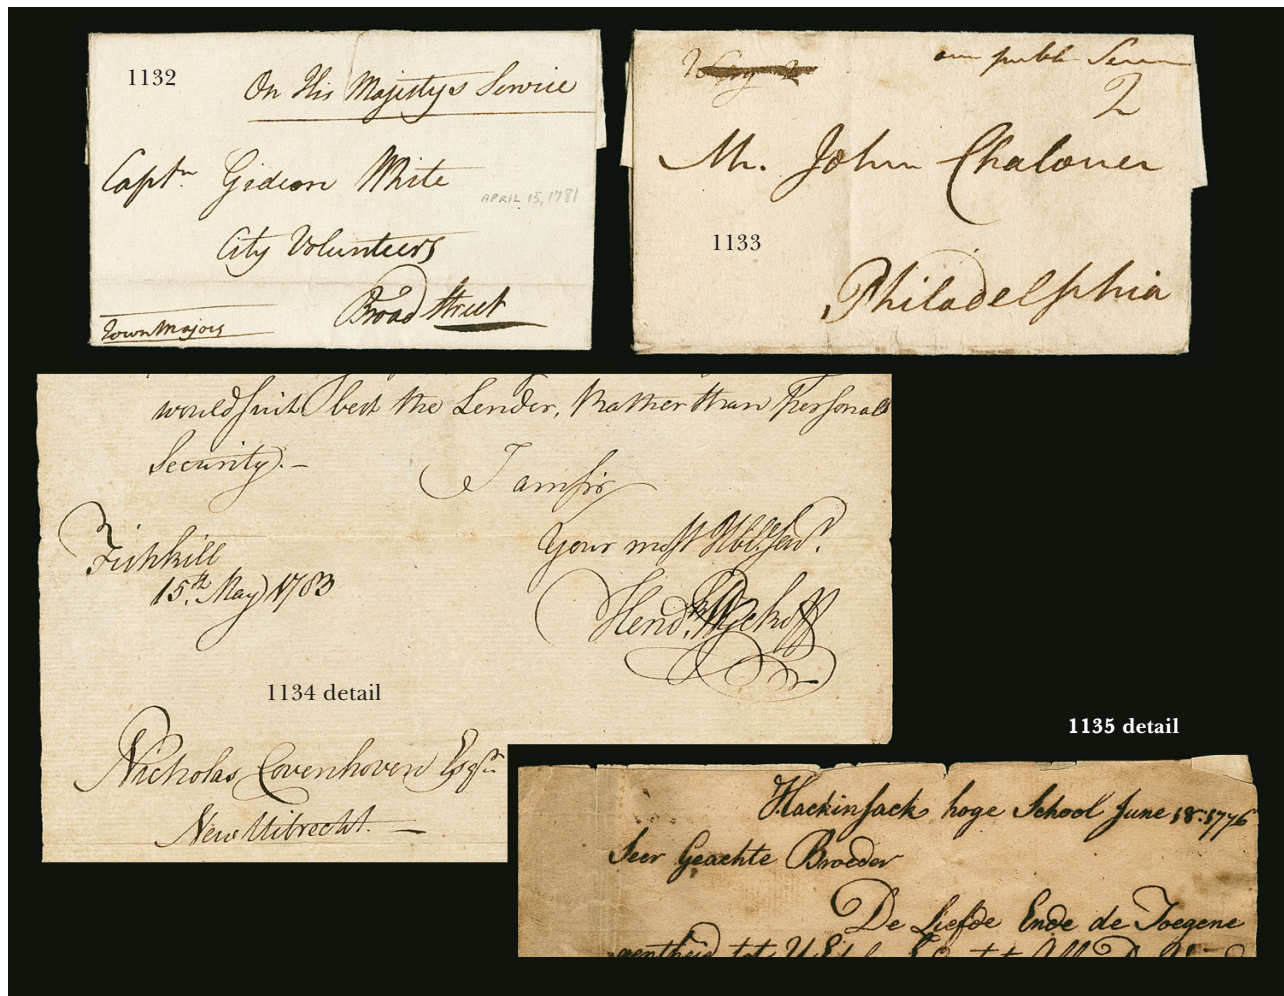 1132
On His Majestys Service
Captn Gideon White
APRIL 15, 1781
City Volunteers
Broad Street
Town Majors
on publk Serv
2
Mr. John Chaloner
1133
Philadelphia
would suit best the Lender, Rather than personal
Security.—
I am Sir
Your most Hble Servt.
Fishkill
15th. May 1783
Hendk. Wyckoff
1134 detail
Nicholas Covenhoven Esqr.
New Utrecht. —
1135 detail
Hackinsack hoge School June 18: 1776
Seer Geachte Broeder
De Liefde Ende de Toegene
gentheid tot U